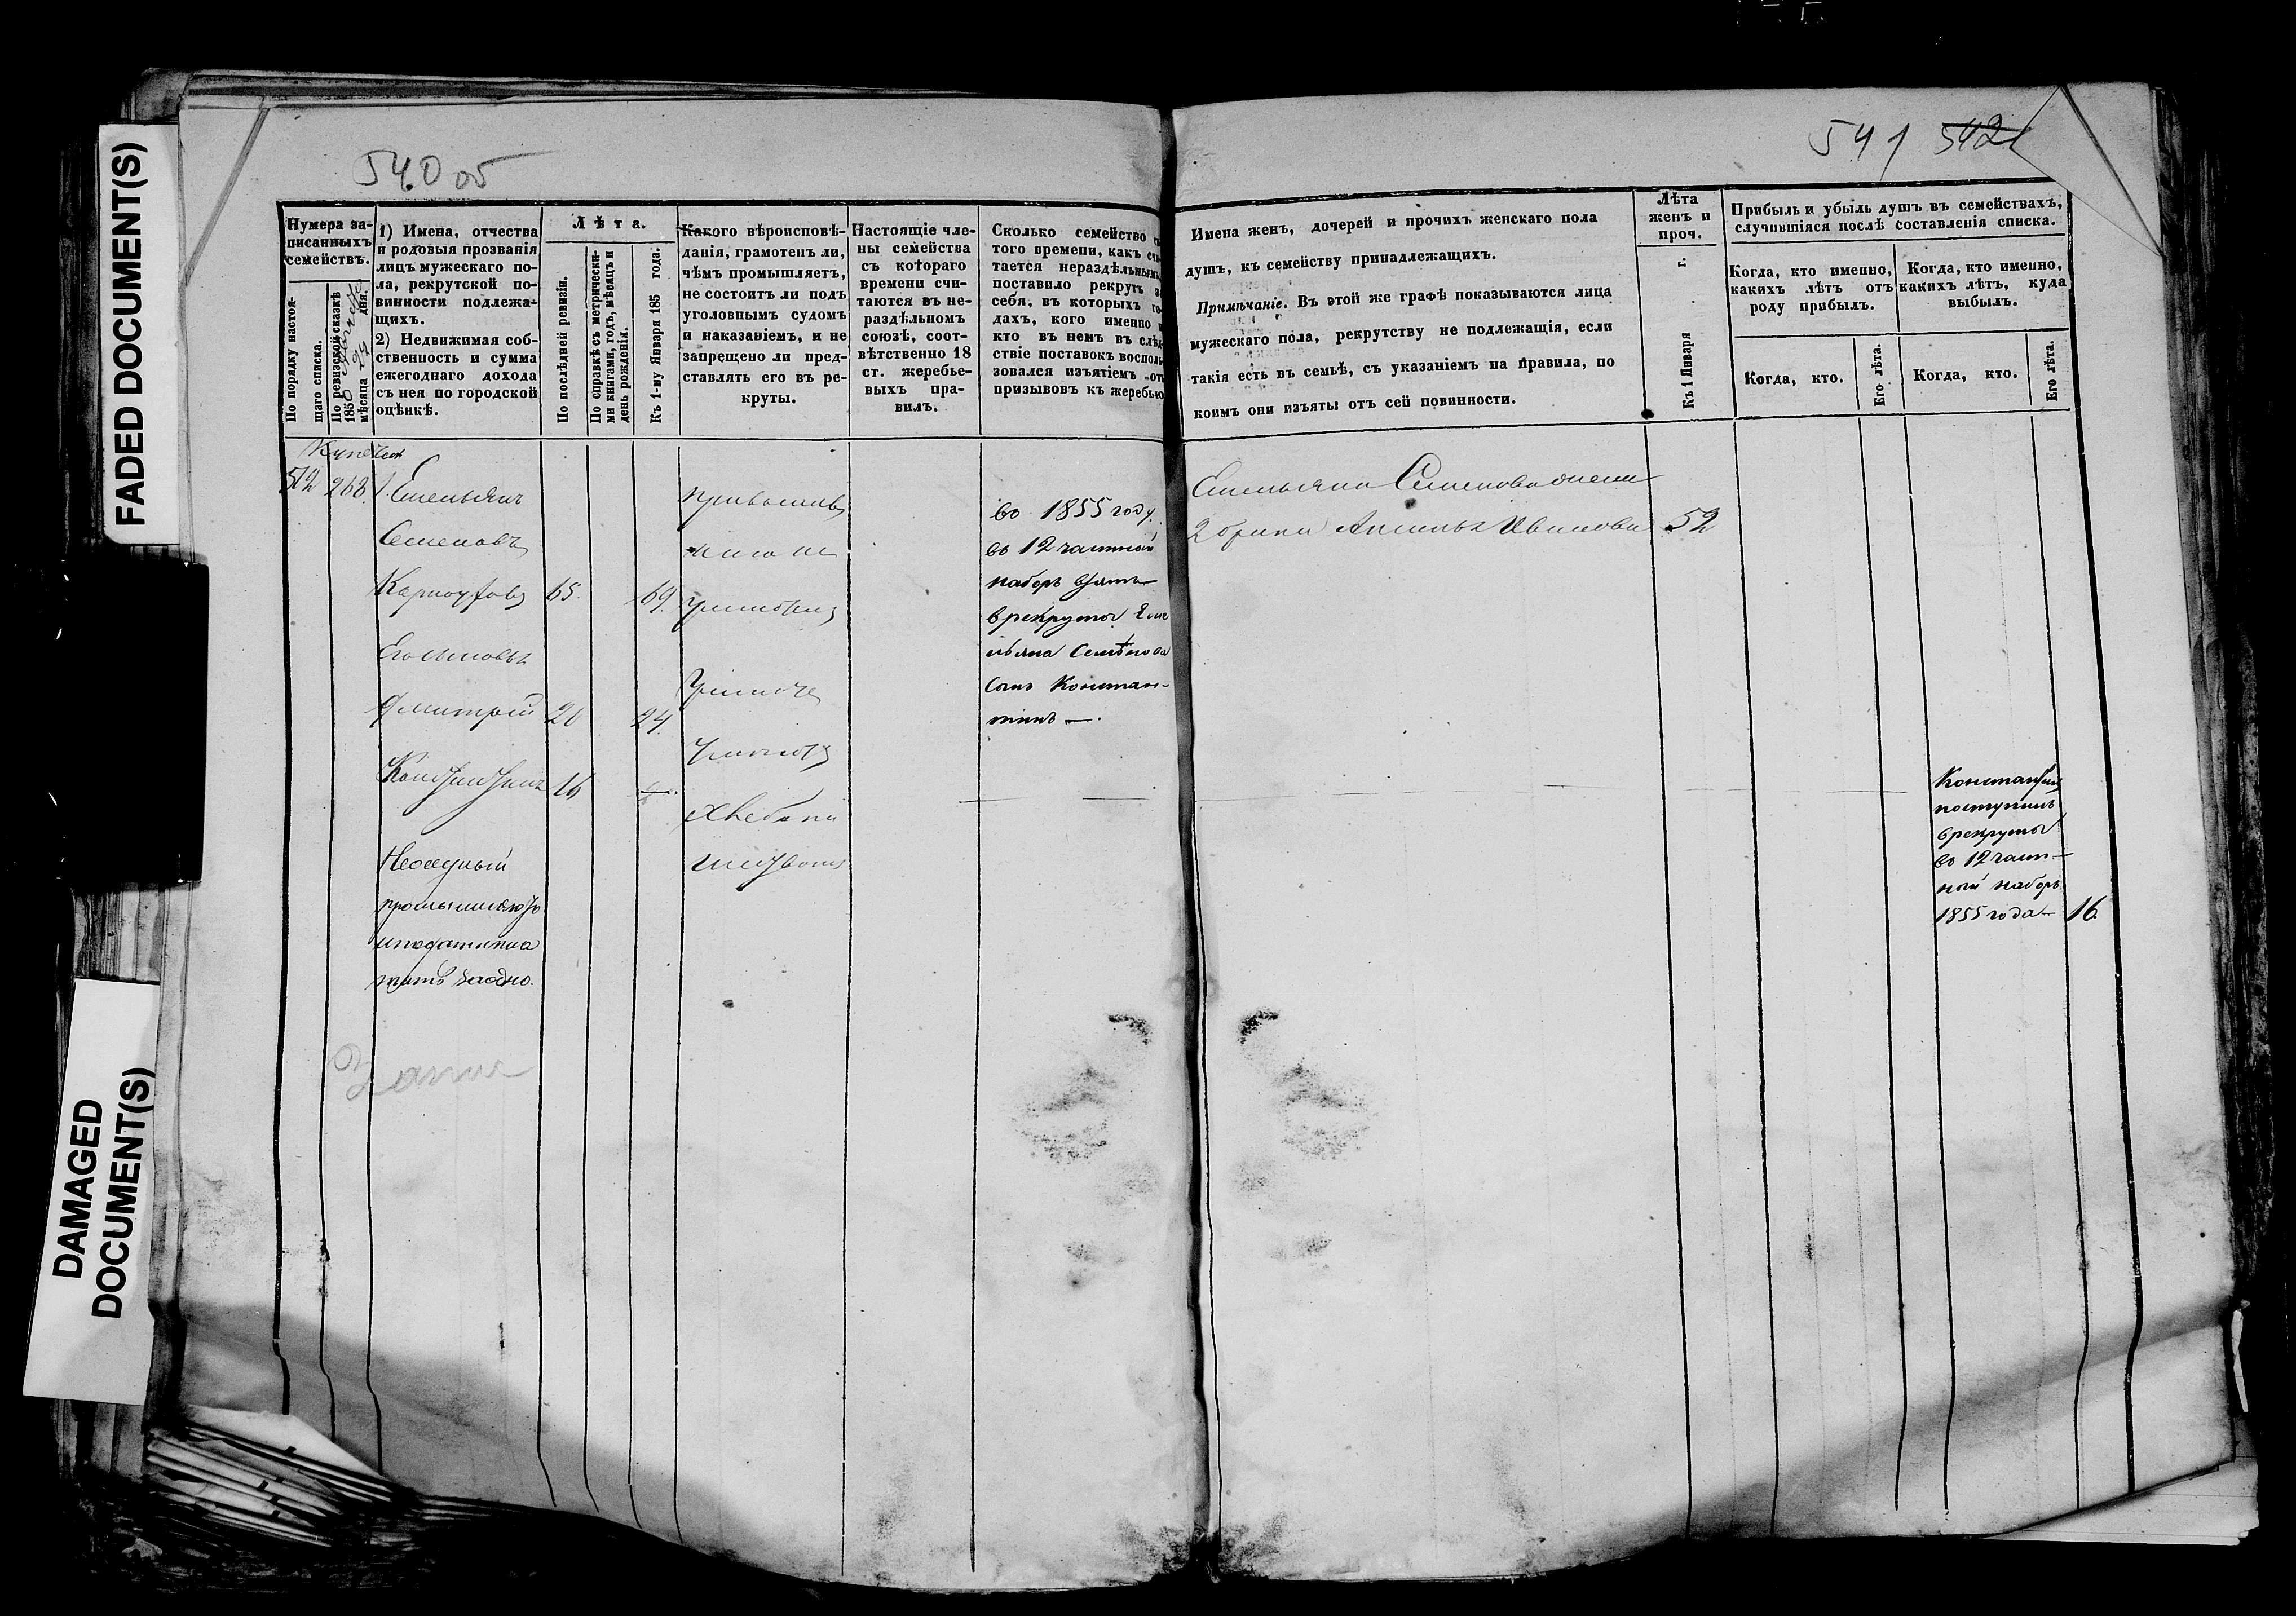 FADED DOCUMENT(S)
DAMAGED
DOCUMENT(S)
540 об
Нумера за-
писанныхъ
семействъ.
По порядку настоя-
щаго списка.
По ревизской сказкѣ
1850
мѣсяца дня.
1) Имена, отчества
и родовыя прозванія
лицъ мужескаго по-
ла, рекрутской по-
винности подлежа-
щихъ.
2) Недвижимая соб-
ственность и сумма
ежегоднаго дохода
съ нея по городской
оцѣнкѣ.
Лѣта.
По послѣдней ревизіи.
По справкѣ съ метрически-
ми книгами, годъ, мѣсяцъ и
день рожденія.
Къ 1-му Января 185 года.
Какого вѣроисповѣ-
данія, грамотенъ ли,
чѣмъ промышляетъ,
не состоитъ ли подъ
уголовнымъ судомъ
и наказаніемъ, и не
запрещено ли пред-
ставлять его въ ре-
круты.
Настоящіе чле-
ны семейства
съ котораго
времени счи-
таются въ не-
раздѣльномъ
союзѣ, соот-
вѣтственно 18
ст. жеребье-
выхъ пра-
вилъ.
Сколько семейство съ
того времени, какъ счи-
тается нераздѣльнымъ,
поставило рекрутъ за
себя, въ которыхъ го-
дахъ, кого именно и
кто въ немъ въ слѣд-
ствіе поставокъ восполь-
зовался изъятіемъ отъ
призывовъ къ жеребью
512 268 Емельянъ
Семеновъ
65 69
Его сыновья
Дмитрій 20 24
Константинъ 16
Неоседный
и подати пла
титъ заодно.
во 1855 году
въ 12 частный
наборъ взятъ
в рекруты Еме
льяна Семенова
сынъ Констан-
тинъ —.
541 542
Имена женъ, дочерей и прочихъ женскаго пола
душъ, къ семейству принадлежащихъ.
Примѣчаніе. Въ этой же графѣ показываются лица
мужескаго пола, рекрутству не подлежащія, если
такія есть въ семьѣ, съ указаніемъ на правила, по
коимъ они изъяты отъ сей повинности.
Лѣта
женъ и
проч.
Къ 1 Января г.
Прибыль и убыль душъ въ семействахъ,
случившіяся послѣ составленія списка.
Когда, кто именно,
какихъ лѣтъ отъ
роду прибылъ.
Когда, кто именно,
какихъ лѣтъ, куда
выбылъ.
Когда, кто.
Его лѣта.
Когда, кто.
Его лѣта.
Емельяна Семенова жена
2 брака Ивановна 52
Константинъ
поступилъ
в рекруты
во 12 част-
ный наборъ
1855 года — 16